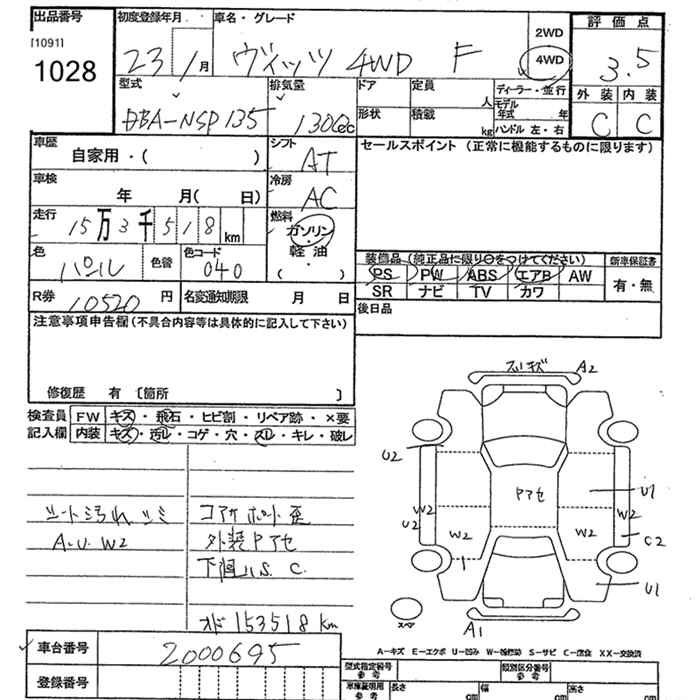 出品番号 初度登録年月 車名・グレード 評価点
[1091]
1028
23 1月 ヴィッツ 4WD F
2WD
4WD
3.5
型式 排気量 ドア 定員 人 ディーラー・並行
DBA-NSP135 1300cc
形状 積載 kg モデル年式 年
ハンドル 左・右
外装 内装
C C
車歴 自家用・( )
シフト AT
セールスポイント (正常に機能するものに限ります)
車検 年 月( 日)
冷房 AC
走行 15万3千518km
燃料 ガソリン・軽油
色 パール 色替 色コード 040
装備品 (純正品に限り○をつけてください) 新車保証書
PS PW ABS エアB AW
SR ナビ TV カワ
有・無
R券 10520円 名変通知期限 月 日
後日品
注意事項申告欄(不具合内容等は具体的に記入して下さい)
修復歴 有 〔箇所 〕
検査員 FW キズ・飛石・ヒビ割・リペア跡・×要
記入欄 内装 キズ・汚レ・コゲ・穴・スレ・キレ・破レ
シート汚れ シミ
A.U W2
コアサポート歪
外装Pアセ
下廻りS.C.
オド153518km
スリキズ A2
U2
Pアセ
U1
W2
U2
W2
W2
W2
C2
U1
スペア
A1
A-キズ E-エクボ U-凹み W-補修跡 S-サビ C-腐食 XX-交換済
車台番号 2000695
登録番号
型式指定番号 参考 類別区分番号 参考
車庫証明用 参考 長さ cm 幅 cm 高さ cm